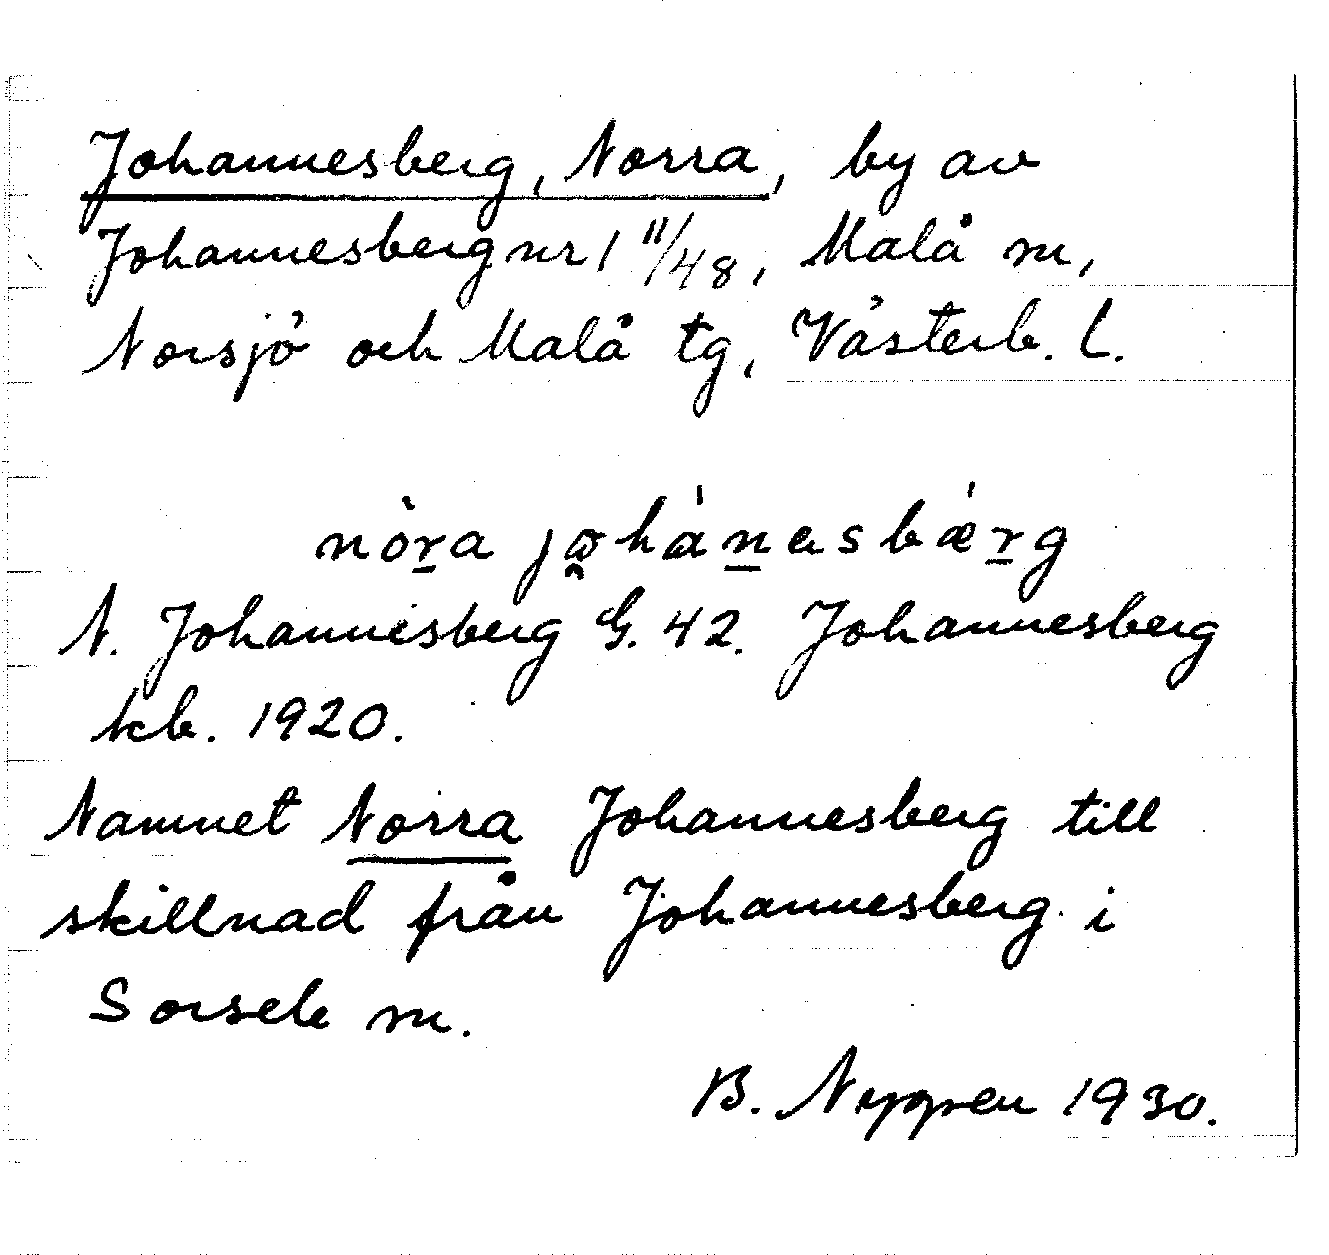 Johannesberg, Norra, by av
Johannesberg nr 1 11/48, Malå sn,
Norsjö och Malå tg, Västerb. l.
nòra johánesbǽrg
N. Johannesberg G. 42. Johannesberg
kb. 1920.
Namnet Norra Johannesberg till
skillnad från Johannesberg i
Sorsele sn.
B. Nygren 1930.